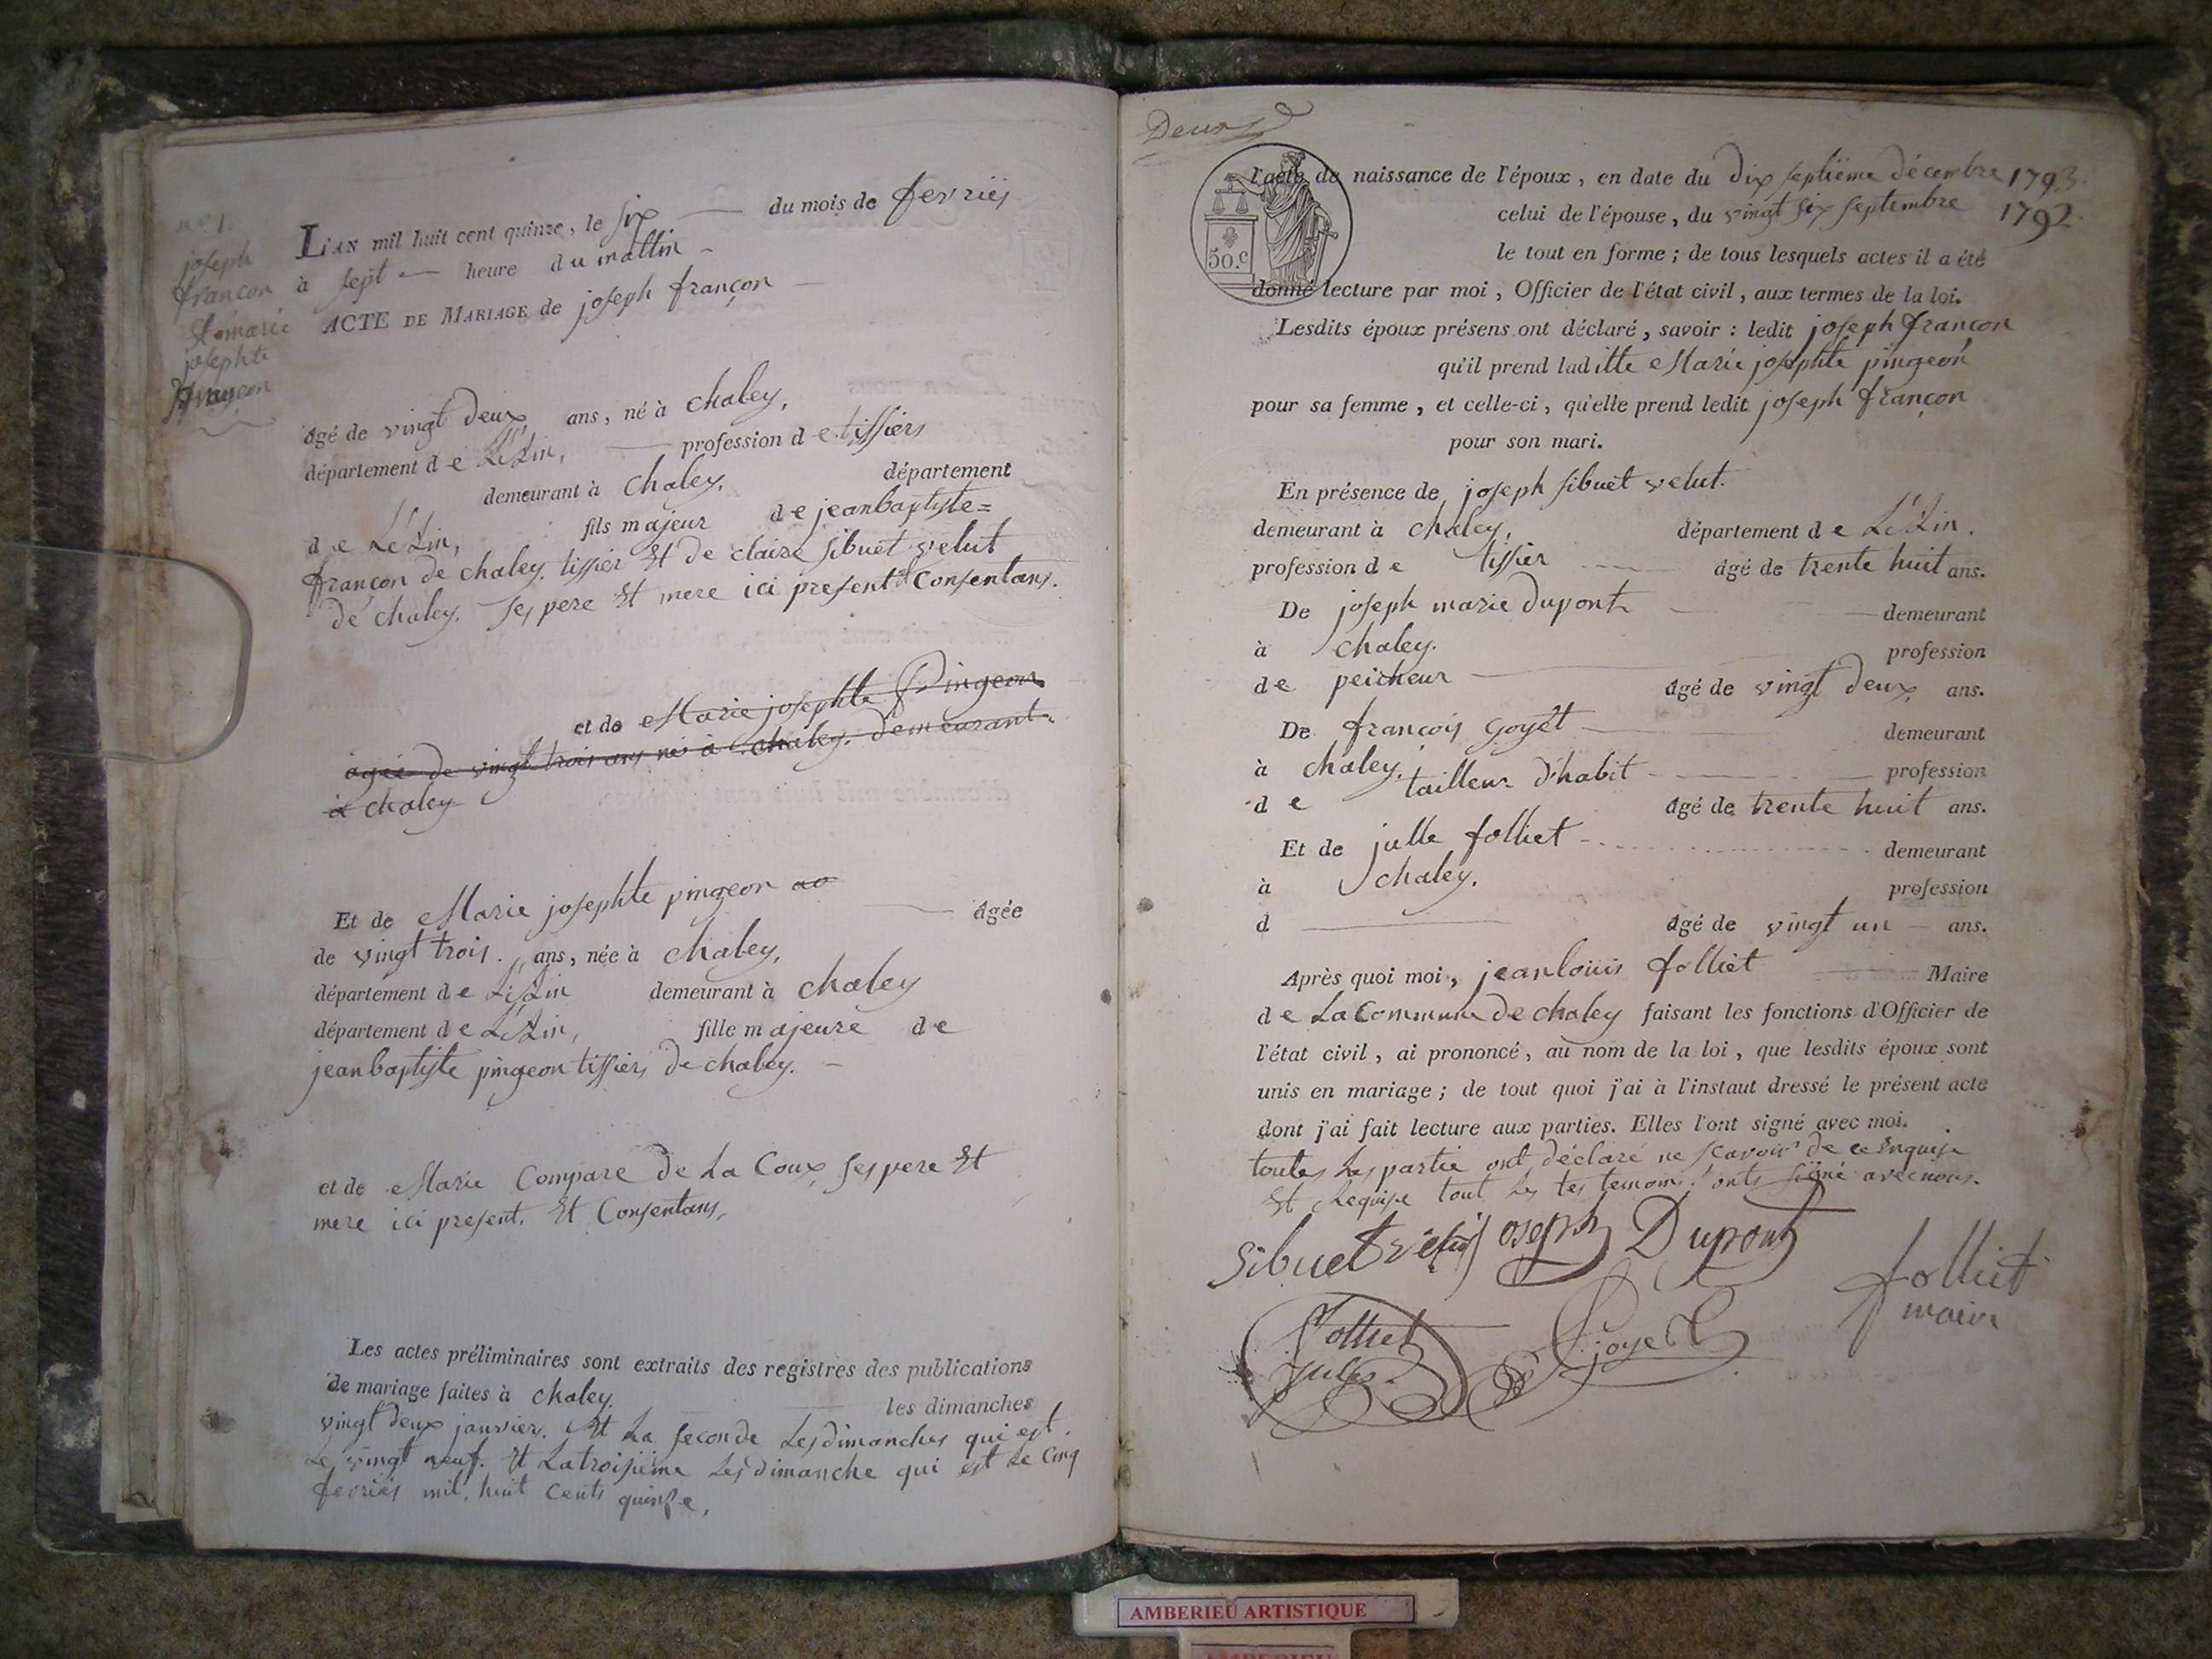 n° 1.
joseph
françon
et marie
josephte
pingeon
L'AN mil huit cent quinze, le six du mois de fevrier
à sept heure du mattin
ACTE DE MARIAGE de joseph françon
âgé de vingt deux ans, né à chaley,
département de L'Ain, profession de tissier
demeurant à chaley, département
de L'Ain, fils majeur de jeanbaptiste=
françon de chaley. tissier Et de claire sibuet velut
de chaley. ses pere Et mere ici present Et Consentans.
et de Marie josephte Pingeon
agée de vingt trois ans né à chaley. demeurant
à chaley
Et de Marie josephte pingeon âgée
de vingt trois. ans, née à chaley,
département de L'Ain demeurant à chaley
département de L'Ain, fille majeure de
jeanbaptiste pingeon tissier de chaley.
et de Marie Compare de La Coux, ses pere Et
mere ici present. Et Consentans,
Les actes préliminaires sont extraits des registres des publications
de mariage faites à chaley. les dimanches
vingt deux janvier. Et La seconde Les dimanches qui est
Le vingt neuf. Et La troisième Les dimanche qui est Le Cinq
fevrier mil huit Cents quinze,
Deux
50.c
l'acte de naissance de l'époux, en date du dix septième décembre 1793.
celui de l'épouse, du vingt six septembre 1792.
le tout en forme; de tous lesquels actes il a été
donné lecture par moi, Officier de l'état civil, aux termes de la loi.
Lesdits époux présens ont déclaré, savoir: ledit joseph françon
qu'il prend laditte Marie josephte pingeon
pour sa femme, et celle-ci, qu'elle prend ledit joseph françon
pour son mari.
En présence de joseph sibuet velut.
demeurant à chaley, département de L'Ain.
profession de tissier âgé de trente huit ans.
De joseph marie dupont demeurant
à chaley. profession
de peicheur âgé de vingt deux ans.
De françois goyet demeurant
à chaley, profession
de tailleur d'habit âgé de trente huit ans.
Et de julle folliet demeurant
à chaley. profession
d âgé de vingt un ans.
Après quoi moi, jean louis folliet Maire
de La Commune de chaley faisant les fonctions d'Officier de
l'état civil, ai prononcé, au nom de la loi, que lesdits époux sont
unis en mariage; de tout quoi j'ai à l'instaut dressé le présent acte
dont j'ai fait lecture aux parties. Elles l'ont signé avec moi.
toutes Les partie ont déclaré ne scavoir de ce Enquise
Et Requise tout Les tes temoins. onts signé avec nous.
Sibuet joseph Dupont
folliet
maire
Folliet
Jules
goyet
AMBERIEU ARTISTIQUE
AMBERIEU